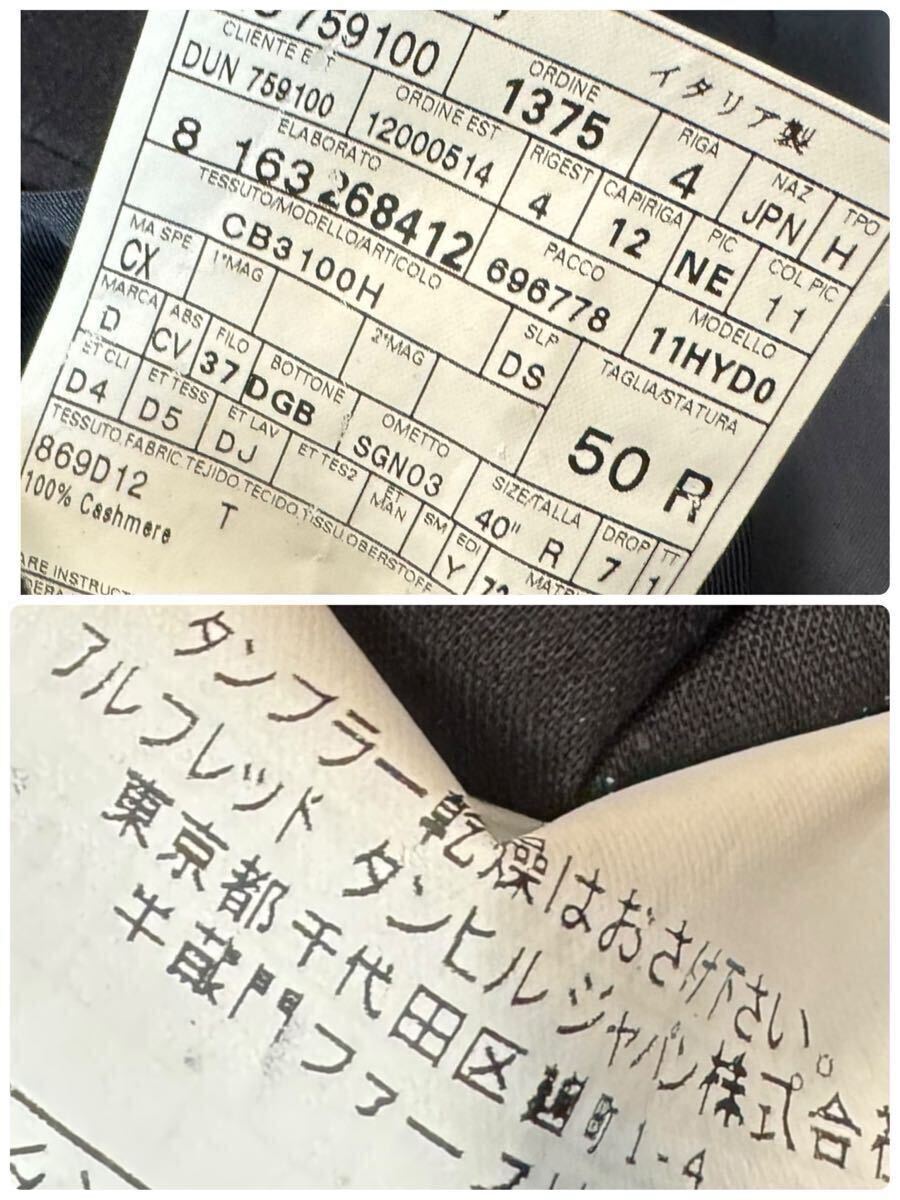 759100
ORDINE
1375
RIGA
4
NAZ
JPN
TPO
H
イタリア製
DUN 759100
ORDINE EST
12000514
RIGEST
4
CAPIRIGA
12
PIC
NE
COL PIC
11
ELABORATO
8 163 268412
PACCO
696778
MODELLO
11HYD0
TESSUTO/MODELLO/ARTICOLO
CB3100H
SLP
DS
TAGLIA/STATURA
50 R
MA SPE
CX
1°MAG
2°MAG
MARCA
D
ABS
CV
FILO
37
BOTTONE
DGB
OMETTO
SGN03
SIZE/TALLA
40" R
DROP
7
TT
1
ET CLI
D4
ET TESS
D5
ET LAV
DJ
ET TES2
ET MAN
SM
EDI
Y
TESSUTO.FABRIC.TEJIDO.TECIDO.TISSU.OBERSTOFF
869D12 T
100% Cashmere
タンブラー乾燥はおさけ下さい。
アルフレッド ダンヒル ジャパン株式会社
東京都千代田区麹町1-4
半蔵門ファー